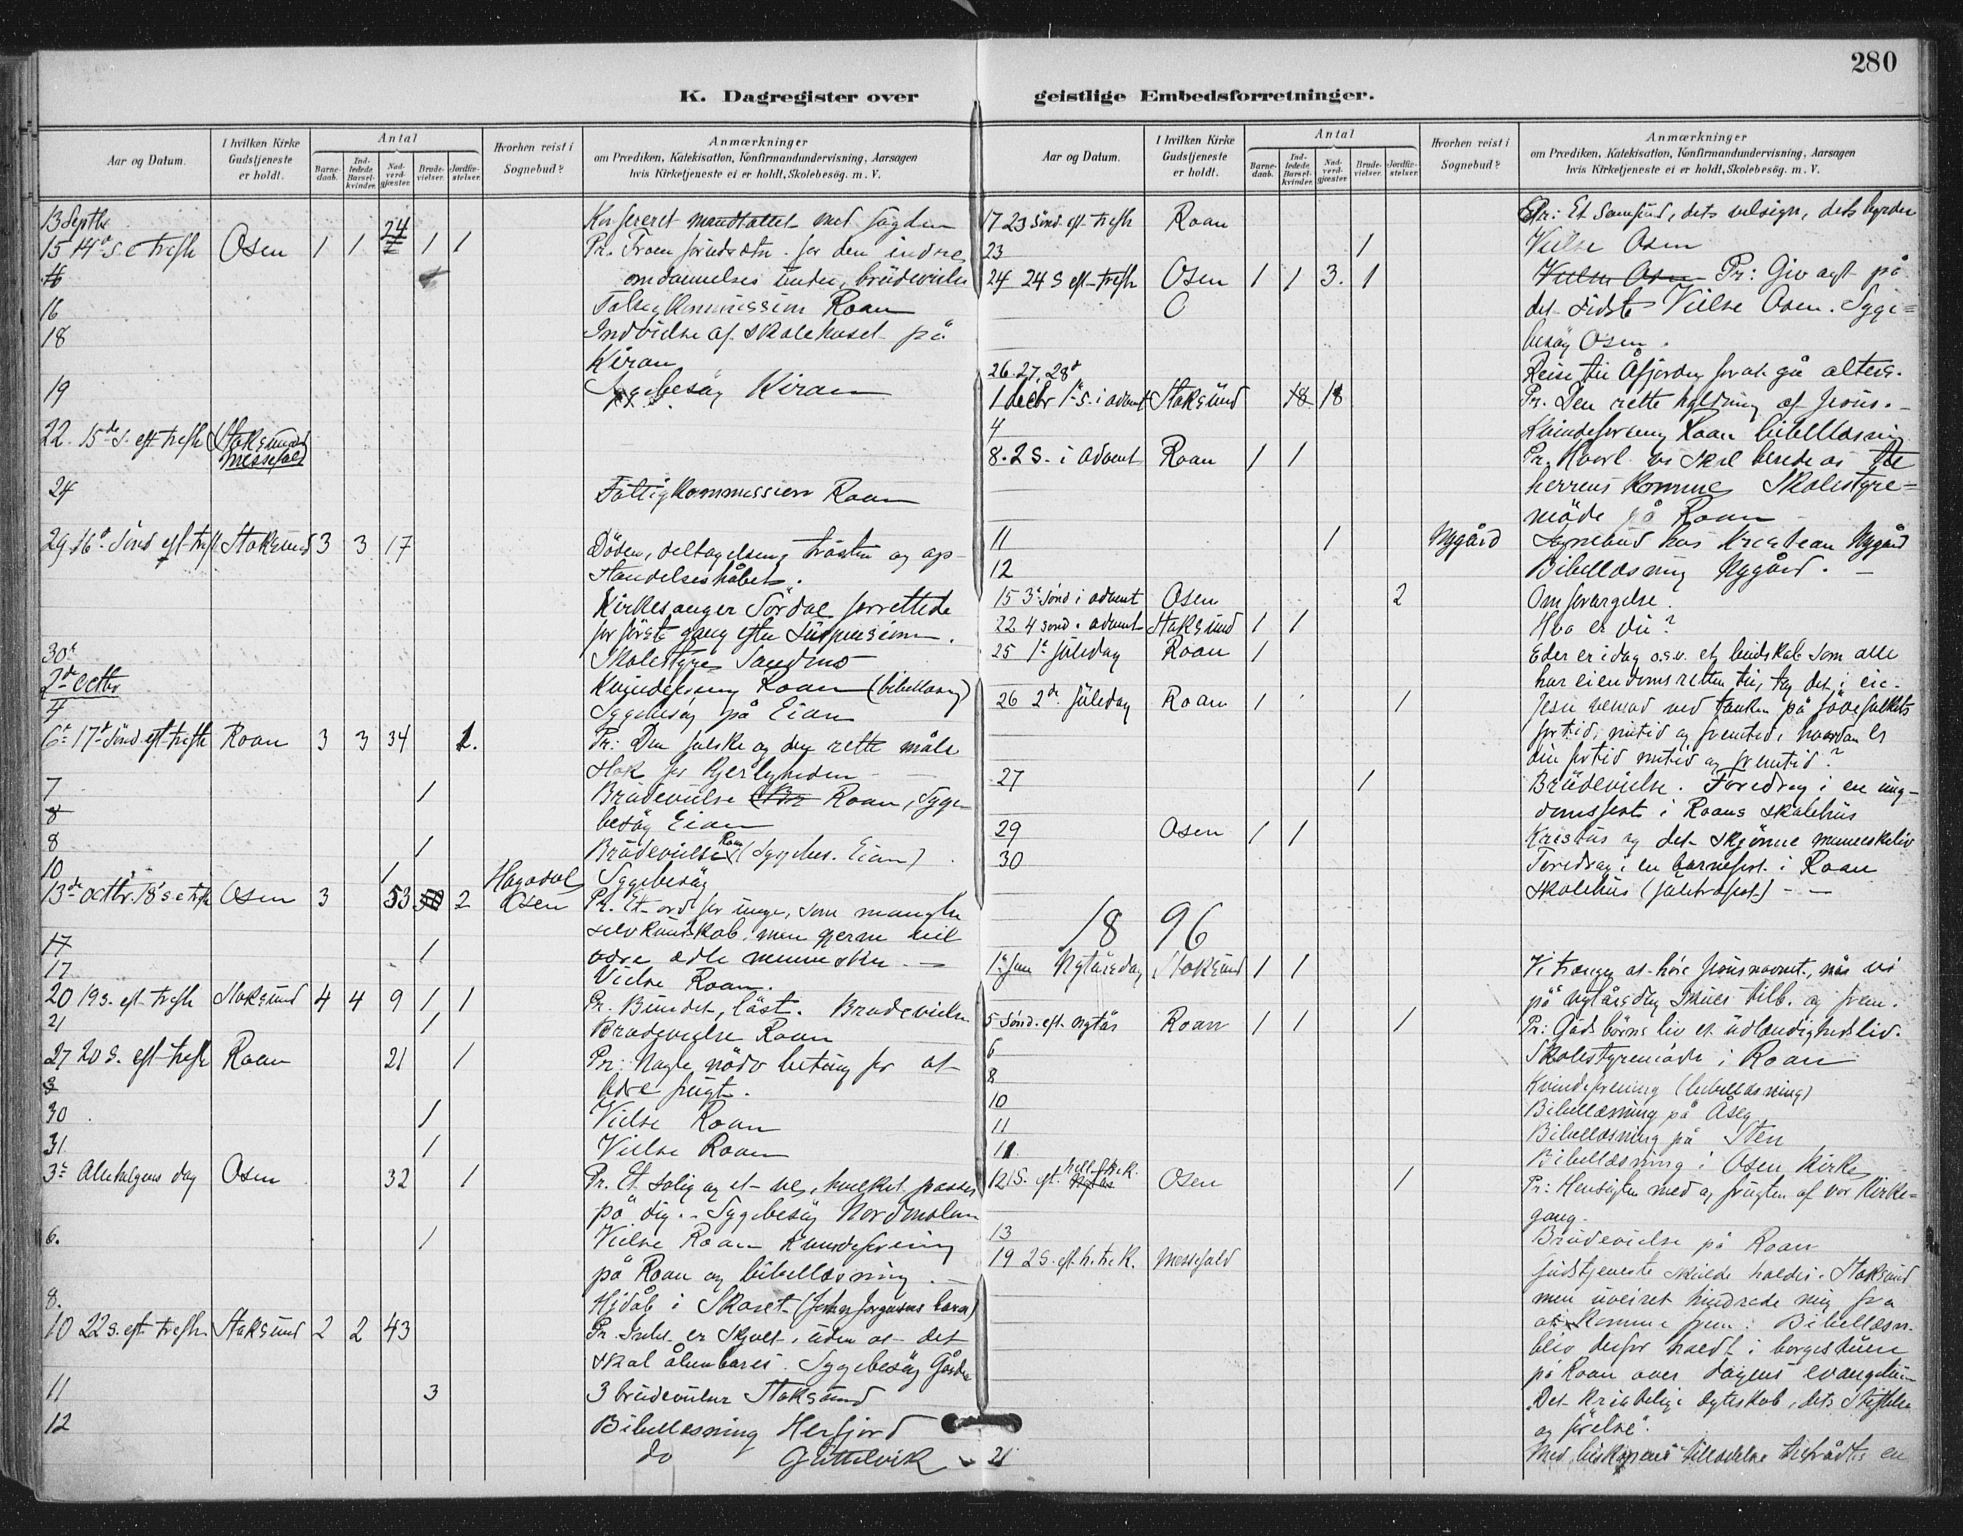 280
K. Dagregister over geistlige Embedsforretninger.
Aar og Datum.
I hvilken Kirke Gudstjeneste er holdt.
Antal
Barnedaab.
Indledede Barselkvinder.
Nadverdgjæster.
Brudevielser.
Jordfæstelser.
Hvorhen reist i Sognebud?
Anmærkninger
om Prædiken, Katekisation, Konfirmandundervisning, Aarsagen
hvis Kirketjeneste ei er holdt, Skolebesøg. m. V.
13 Septbr
15 14de S. e trefh Osen 1 1 24 1 1 Pr. Troen for den indre
omdannelses under, brudevielse
16 Roan
18 Indvielse af skolehuset på
Kiran
19 Sygebesøg Kiran
22. 15de s. eft trefh Stoksund
Messefald
24 Fattigkommission Roan
29 16de Sønd eft trefh Stoksund 3 3 17 Døden, deltagelsen, trøsten og op-
standelseshåbet.
Kirkesanger Sørdal forrettede
for første gang efter
30te Skolestyre Sandmo
2de Octbr Kvindeforening Roan (bibellæsng)
4 Sygebesøg på Eian
6te 17de Sønd eft trefh Roan 3 3 34 1. Pr: Den falske og den rette måle
stok for kjerligheden
7 1 Brudevielse Roan, Syge-
besøg Eian
8
8 1 Brudevielse Roan (Sygebes. Eian)
10 1 Hagadal Sygebesøg
13de Octbr. 18 S. e tref Osen 3 53 2 Osen Pr. Et ord for unge, som mangler
selvkundskab, men gjerne vil
være ædle mennesker.
17
17 1 Vielse Roan.
20 19 s. eft trefh Stoksund 4 4 9 1 1 Pr. Bundet, løst. Brudevielse
21 1 Brudevielse Roan
27 20 S. eft trefh Roan 21 1 Pr: Nogle nødv beting for at
bære frugt.
30 1 Vielse Roan
31 1 Vielse Roan
3te Allehelgens dag Osen 32 1 Pr. Et salig og et ve, hvilket passer
på dig. Sygebesøg
6. 1 Vielse Roan Kvindeforening
på Roan og bibellæsning.
8. Hjdåb i Skaret
10 22 s. eft trefh. Stoksund 2 2 43 Pr. Intet er skjult, uden at det
skal åbenbares. Sygebesøg
11 3 3 brudevielser Stoksund
12 Bibellæsning Herfjord
do
Aar og Datum.
I hvilken Kirke Gudstjeneste er holdt.
Antal
Barnedaab.
Indledede Barselkvinder.
Nadverdgjæster.
Brudevielser.
Jordfæstelser.
Hvorhen reist i Sognebud?
Anmærkninger
om Prædiken, Katekisation, Konfirmandundervisning, Aarsagen
hvis Kirketjeneste ei er holdt, Skolebesøg. m. V.
17 23 Sønd eft trefh Roan Pr: Et Samfund, dets velsign, dets byrder
23 1 Vielse Osen
24 24 S eft trefh Osen 1 1 3. 1 Vielse Osen Pr: Giv agt på
det sidste Vielse Osen. Syge-
besøg Osen.
26. 27. 28de Reise til Åfjorden for at gå alters.
1 decbr 1te S. i advent Stoksund 18 18 Pr. Den rette holdning af Jesus.
4 Kvindeforening Roan bibellæsning
8. 2 S. i advent Roan 1 1 Pr. Hvorl. vi skal berede os til
herrens komme Skolestyre-
møde på Roan
11 1 Nygård Sognebud hos Nygård
12 Bibellæsning Nygård.
15 3de Sønd i advent Osen 2 Om forargelse.
22 4 sønd. advent Stoksund 1 1 Hvo er du?
25 1te Juledag Roan 1 Eder er idag o.s.v. et budskab som alle
har eiendomsretten til,
26 2den Juledag Roan 1 1 Jesu vemod ved tanken på jødefolkets
fortid, nutid og fremtid, hvordan er
din fortid nutid og fremtid?
27 1 Brudevielse. Foredrag i en ung-
domsfest i Roans skolehus
29 Osen 1 1 Kristus og det skjønne menneskeliv
30 Foredrag i en barnefest i Roan
Skolehus (juletræfest)
1896
1te Jan Nytårsdag Stoksund 1 1 Vi trænger at høre Jesusnavnet, når vi
på nytårsdag skuer tilb. og frem.
5 Sønd. eft. nytår Roan 1 1 1 Pr: Guds børns liv et udlændighedsliv.
6 Skolestyremøde i Roan
8 Kvindeforening (bibellæsning)
10 Bibellæsning på Åseg
11 Bibellæsning på Sten
11 Bibellæsning i Osen Kirke
12 1 S. eft. hell. tre k. Osen 1 Pr: Hensigten med og frugten af vor Kirke-
gang.
13 Brudevielse på Roan
19 2 S. eft h. tre K. Messefald Gudstjeneste skulde holdes i Stoksund
men uveiret hindrede mig fra
at komme frem. Bibellæsn.
blev derfor holdt i borgestuen
på Roan over dagens evangelium
"Det kristelige ægteskab, dets stiftelse
og førelse".
21 Med biskopens tilladelse tiltrådtes en